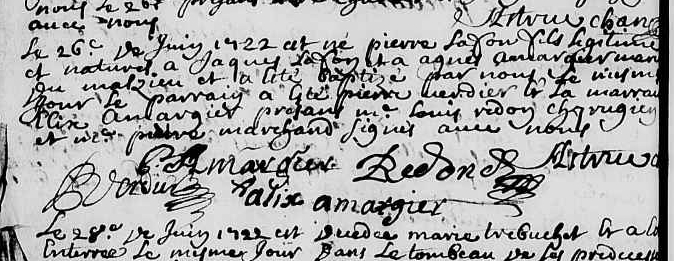 nous le 26e
avec nous Astruc chan
Le 26e de Juin 1722 est né pierre lafon fils legitime
et naturel a Jaques lafon et a agnes amargier mari
du malzieu et a été baptize par nous le mesme
jour le parrain a été pierre verdier et la marrai
alix Amargier presans me louis redon chyrugien
et me pierre marchand signes avec nous
P Amargier Redon Astruc
P Verdier alix amargier
Le 28e de Juin 1722 est decedee marie trebuchet et a
Enterree le mesme jour dans le tombeau de ses predecess